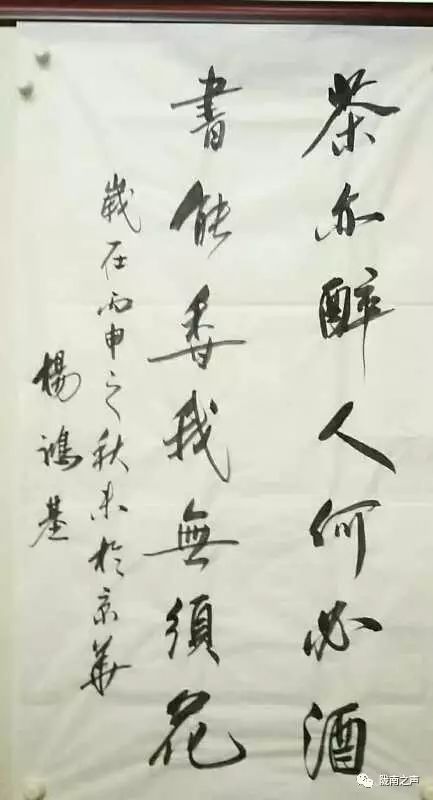 茶亦醉人何必酒
書能香我無須花
歲在丙申之秋末於京華
楊鴻基
陇南之声